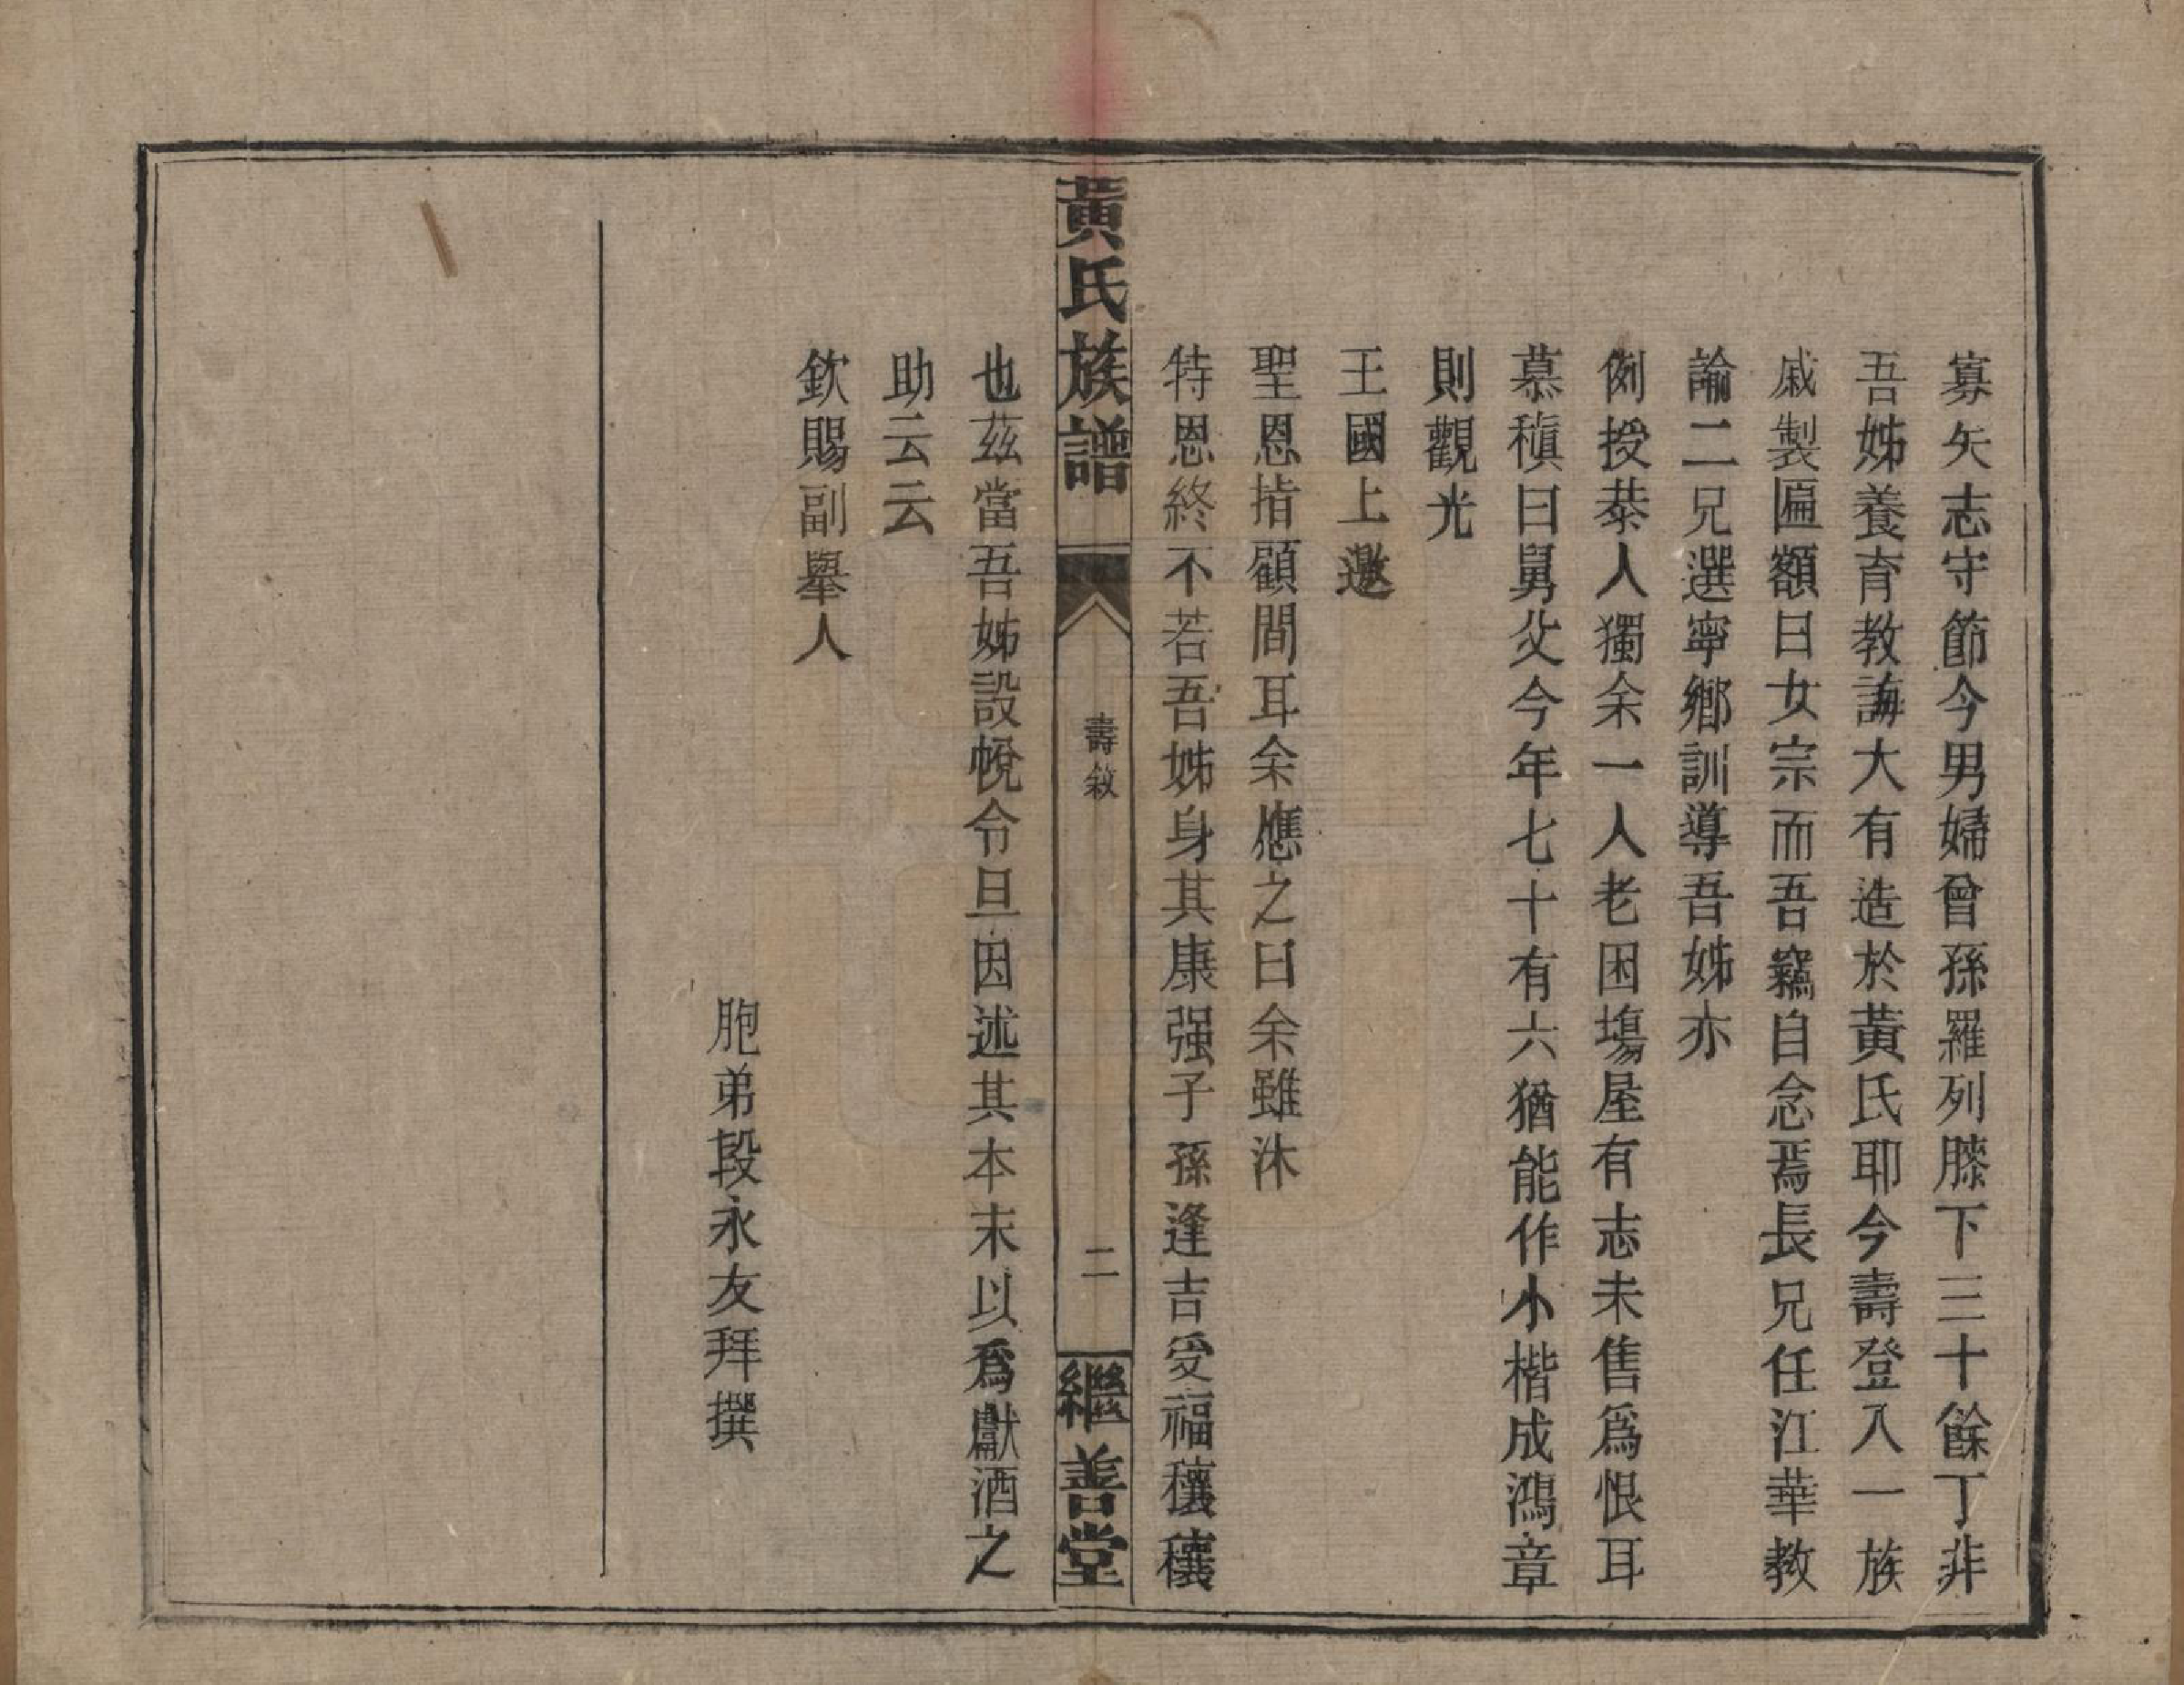 寡矢志守節今男婦曾孫羅列膝下三十餘丁非
吾姊養育教誨大有造於黃氏耶今壽登八一族
戚製匾額曰女宗而吾竊自念焉長兄任江華教
諭二兄選寧鄉訓導吾姊亦
例授恭人獨余一人老困塲屋有志未售爲恨耳
慕稹曰舅父今年七十有六猶能作小楷成鴻章
則觀光
王國上邀
聖恩指顧間耳余應之曰余雖沐
特恩終不若吾姊身其康强子孫逢吉受福穰穰
黃氏族譜
壽敘
二
繼善堂
也茲當吾姊設帨令旦因述其本末以爲獻酒之
助云云
欽賜副舉人
胞弟段永友拜撰